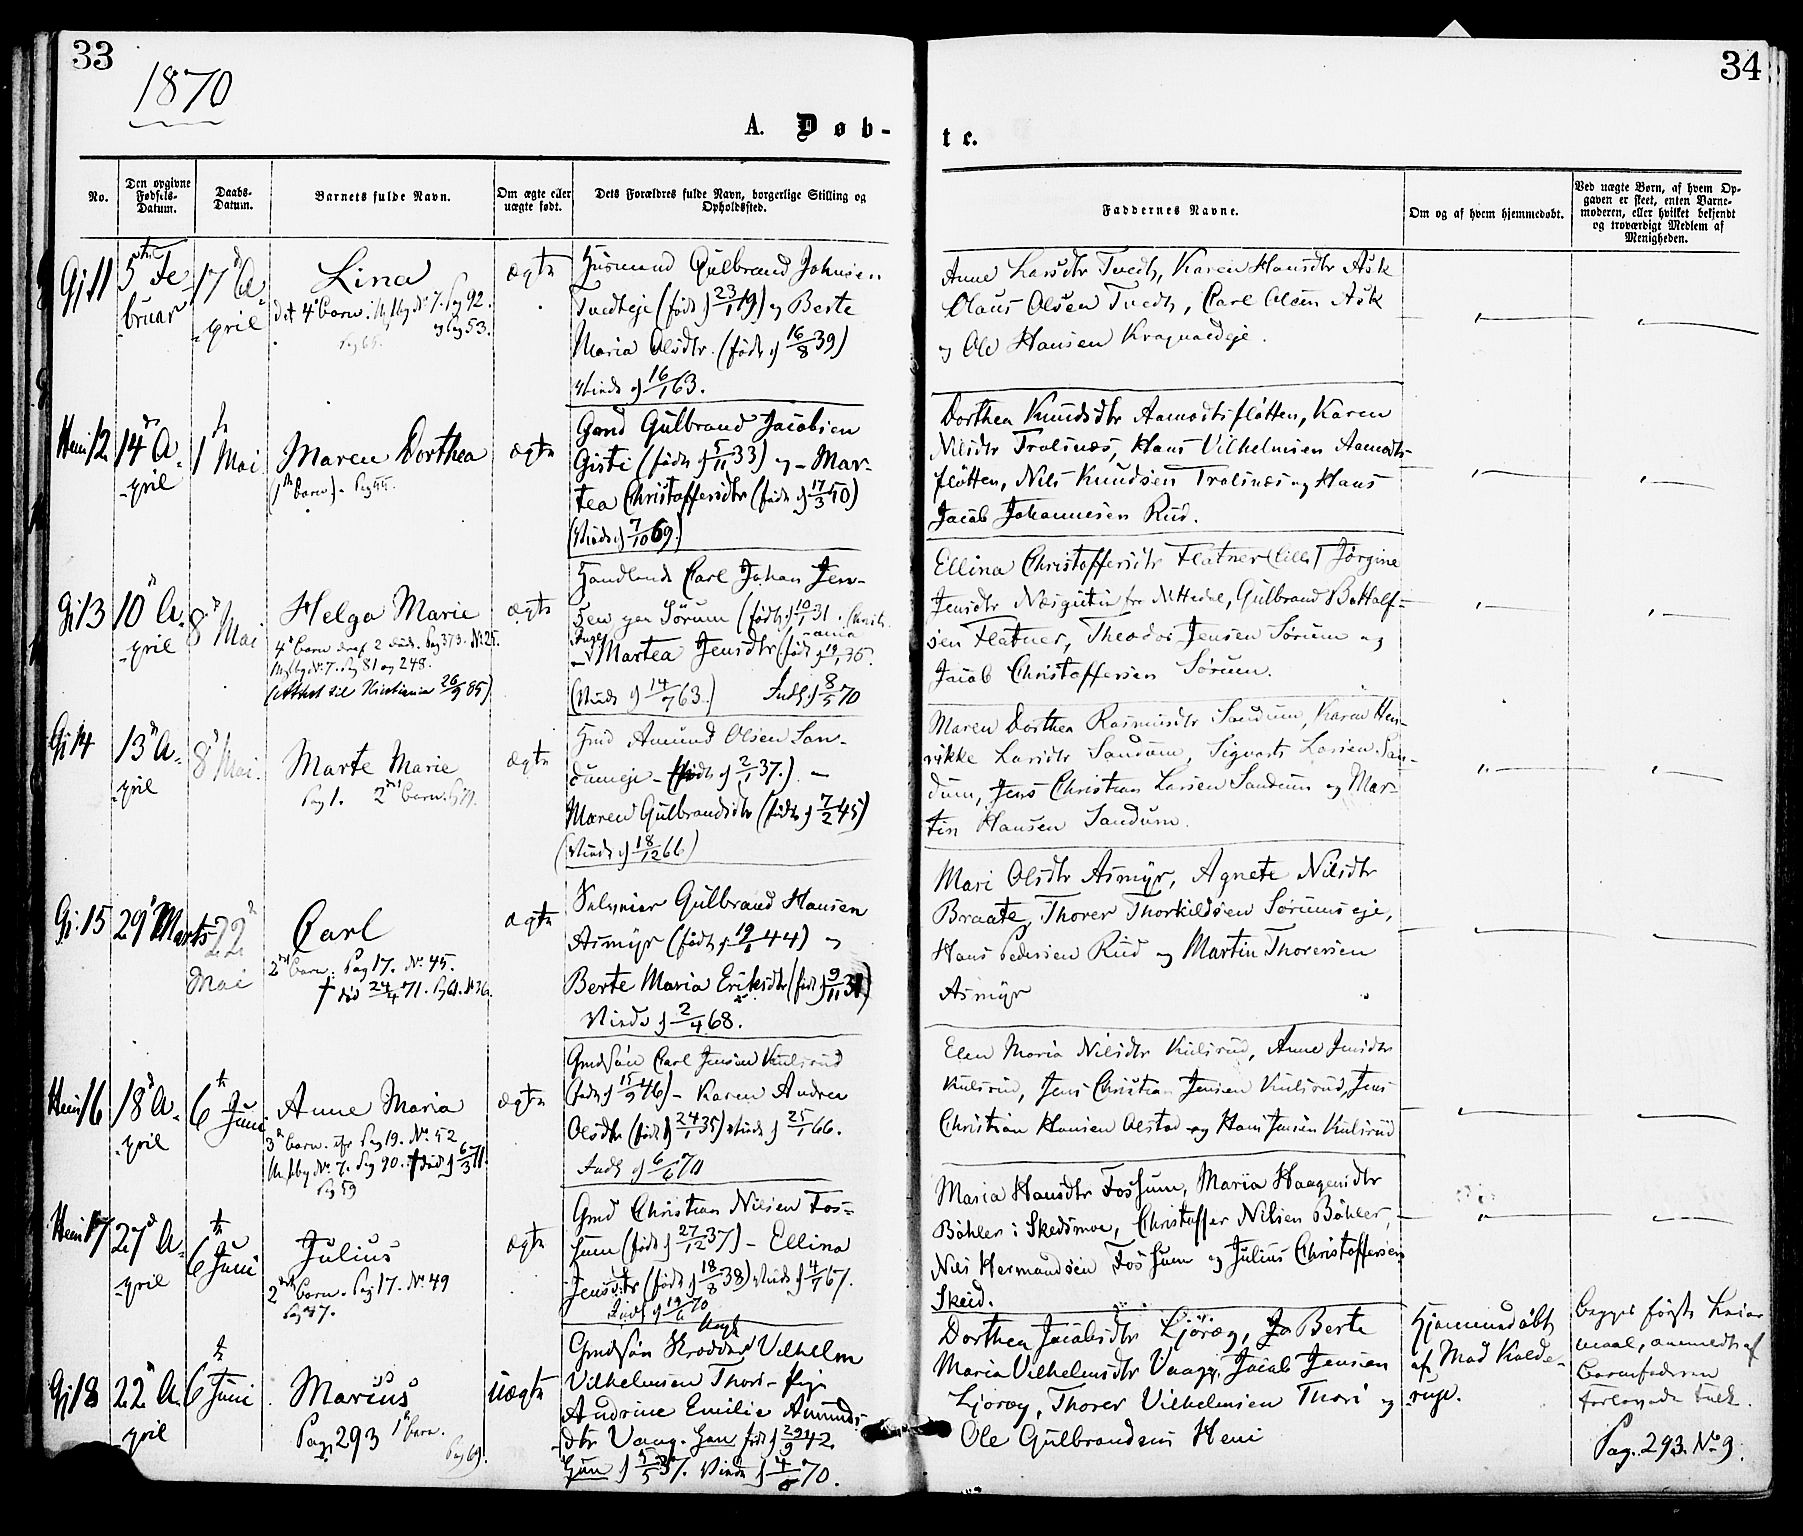 33
34
1870
A. Døb-
te.
No.
Den opgivne Fødsels-Datum.
Daabs-Datum.
Barnets fulde Navn.
Om ægte eller uægte født.
Dets Forældres fulde Navn, borgerlige Stilling og Opholdssted.
Faddernes Navne.
Om og af hvem hjemmedøbt.
Ved uægte Børn, af hvem Op-
gaven er skeet, enten Barne-
moderen, eller hvilket bekjendt
og troværdigt Medlem af
Menigheden.
Gj 11
5te Fe-
bruar
17d A-
pril
Lina
det 4de Barn. Pag 92.
og Pag 53.
ægte
Husmand Gulbrand Johnsen
Tvedteje (født 23/1 19) og Berte
Maria Olsdtr. (født 16/8 39)
Viede 16/1 63.
Anne Larsdtr Tvedt, Karen Hansdtr Ask
Olaus Olsen Tvedt, Carl Olsen Ask
og Ole Hansen
Heni 12.
14d A-
pril
1te Mai
Maren Dorthea
(1te Barn) - Pag 55.
ægte
Gmd Gulbrand Jacobsen
Gisti (født 5/11 33) og - Mar-
tea Christoffersdtr (født 17/3 50)
(Viede 7/10 69.)
Dorthea Knudsdtr Aamodtsfløtten, Karen
Nilsdtr Tralsnæs, Hans Vilhelmsen Aamodts-
fløtten, Nils Knudsen Tralsnæs og Hans
Jacob Johannesen Rud.
Gj 13
10d A-
pril
8d Mai
Helga Marie
4de Barn deraf 2 døde. Pag 373. No. 25.
No. 7. Pag 81 og 248.
(Attest til Kristiania 26/9 85)
ægte
Handlende Carl Johan Jen-
sen Sørum (født 10/1 31.
Martea Jensdtr (født 19/1 35.
(Viede 14/7 63.) Indl. 8/5 70
Ellina Christoffersdtr Flatner Jørgine
Jensdtr Gulbrand Bottolf-
sen Flatner, Theodor Jensen Sørum og
Jacob Christoffersen Sørum.
Gj 14
13d A-
pril
8d Mai.
Marte Marie
Pag 1. 2det Barn.
ægte
Hmd Amund Olsen San-
dumeje - (født 2/1 37.) -
Maren Gulbrandsdtr (født 7/2 45)
(Viede 18/12 66)
Maren Dorthea Rasmusdtr Sandum, Karen Hen-
rikke Larsdtr Sandum, Sigvart Larsen San-
dum, Jens Christian Larsen Sandum og Mar-
tin Hansen Sandum.
Gj. 15
29d Marts
22d
Mai
Carl
2det Barn. Pag 17. No. 45.
† død 24/4 71.
ægte
Selveier Gulbrand Hansen
Asmyr (født 19/1 44) og
Berte Maria Eriksdtr (født 9/11 31)
Viede 2/4 68.
Mari Olsdtr Asmyr, Agnete Nilsdtr
Braate, Thorer Thorkildsen Sørumseje,
Hans Pedersen Rud og Martin Thorersen
Asmyr
Heni 16
18d A-
pril
6te Juni
Anne Maria
3de Barn. Pag 19. No. 52
No. 7. Pag 90. † død 6/3 71.
Pag 59
ægte
Gmdsøn Carl Jensen Kulsrud
(født 15/9 46) - Karen Andrea
Olsdtr (født 24/1 35) Viede 25/1 66.
Indl. 6/6 70
Elen Maria Nilsdtr Kulsrud, Anne Jensdtr
Kulsrud, Jens Christian Jensen Kulsrud, Jens
Christian Hansen Olstad og Hans Jensen Kulsrud
Heni 17
27d A-
pril
6te Juni
Julius
2det Barn. Pag 17. No. 49
Pag 47.
ægte
Gmd Christian Nilsen Fos-
sum (født 27/12 37) - Ellina
Jensdtr (født 18/8 38) Viede 4/7 67.
Indl. 19/6 70
Maria Hansdtr Fossum, Maria Haagensdtr
Bøhler i Skedsmoe, Christoffer Nilsen Bøhler,
Nils Hermandsen Fossum og Julius Christoffersen
Skeid.
Gj 18
22d A-
pril
6te Juni
Marius
Pag. 293 1te Barn.
Pag 69.
uægte
Gmdsøn Vilhelm
Vilhelmsen Thori - Pige
Andrine Emilie Amunds-
dtr Vaag. Han født 29/9 42.
Hun 5/5 37. Viede 4/8 70.
Dorthea Jacobsdtr Ljørøg, Berte
Maria Vilhelmsdtr Vaag, Jacob Jensen
Ljørøg, Thorer Vilhelmsen Thori og
Ole Gulbrandsen Heni
Hjemmedøbt
af Mad Kolde-
rup.
Begges første Leier-
maal, anmeldt af
Barnefaderen
Pag. 293. No. 9.